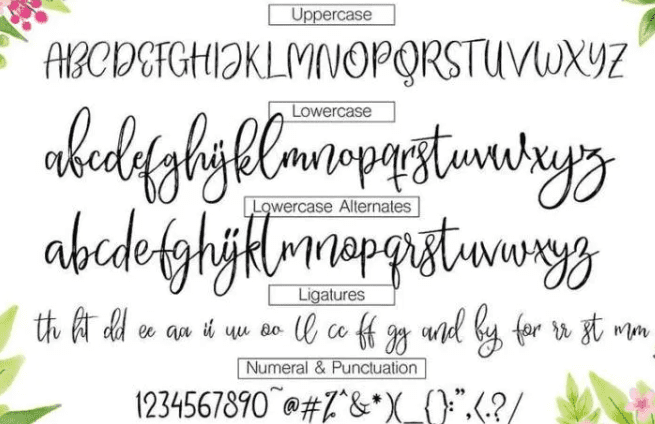 Uppercase
ABCDEFGHIJKLMNOPQRSTUVWXYZ
Lowercase
abcdefghijklmnopqrstuvwxyz
Lowercase Alternates
abcdefghijklmnopqrstuvwxyz
Ligatures
th ht dd ee aa ii uu oo ll cc ff gg and by for rr st mm
Numeral & Punctuation
1234567890~@#%^&*)(_{}:",<.?/